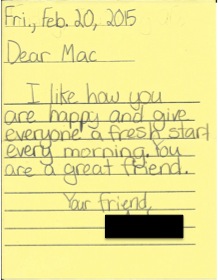 Fri., Feb. 20, 2015
Dear Mac
I like how you
are happy and give
everyone a fresh start
every morning. You
are a great friend.
Your friend,